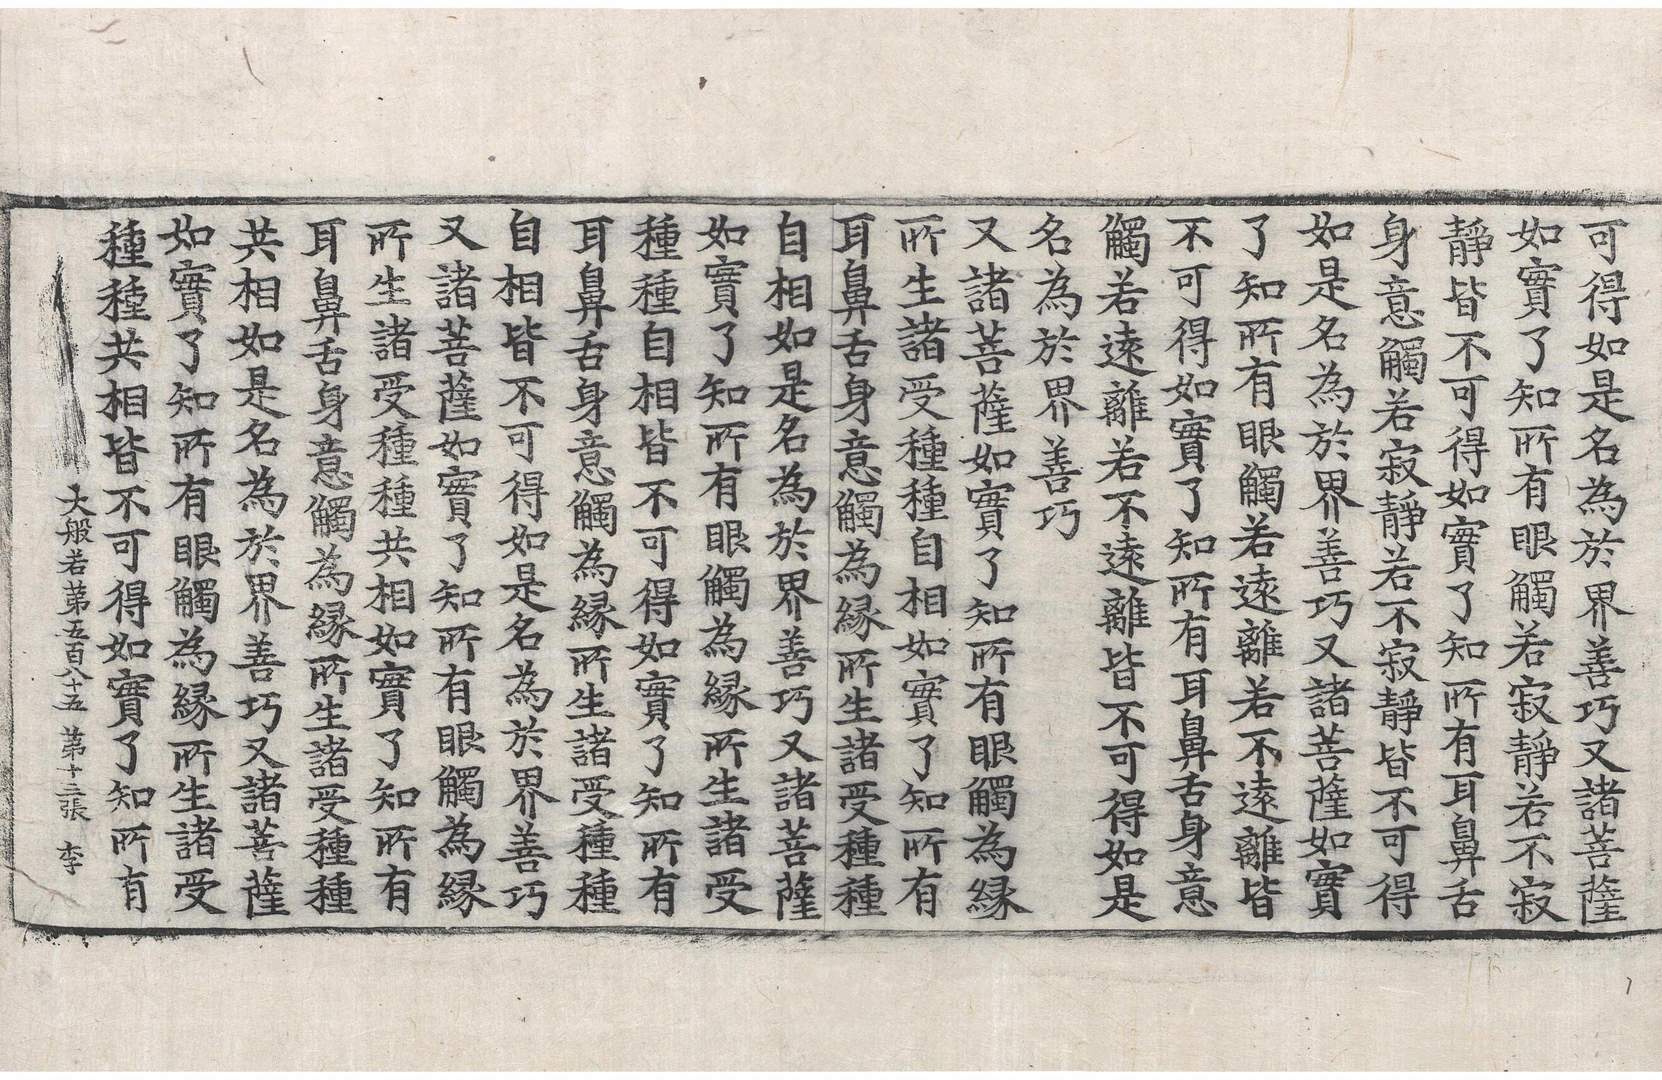 可得如是名為於界善巧又諸菩薩
如實了知所有眼觸若寂靜若不寂
靜皆不可得如實了知所有耳鼻舌
身意觸若寂靜若不寂靜皆不可得
如是名為於界善巧又諸菩薩如實
了知所有眼觸若遠離若不遠離皆
不可得如實了知所有耳鼻舌身意
觸若遠離若不遠離皆不可得如是
名為於界善巧
又諸菩薩如實了知所有眼觸為縁
所生諸受種種自相如實了知所有
耳鼻舌身意觸為縁所生諸受種種
自相如是名為於界善巧又諸菩薩
如實了知所有眼觸為縁所生諸受
種種自相皆不可得如實了知所有
耳鼻舌身意觸為縁所生諸受種種
自相皆不可得如是名為於界善巧
又諸菩薩如實了知所有眼觸為縁
所生諸受種種共相如實了知所有
耳鼻舌身意觸為縁所生諸受種種
共相如是名為於界善巧又諸菩薩
如實了知所有眼觸為縁所生諸受
種種共相皆不可得如實了知所有
大般若第五百八十五 第十三張 李